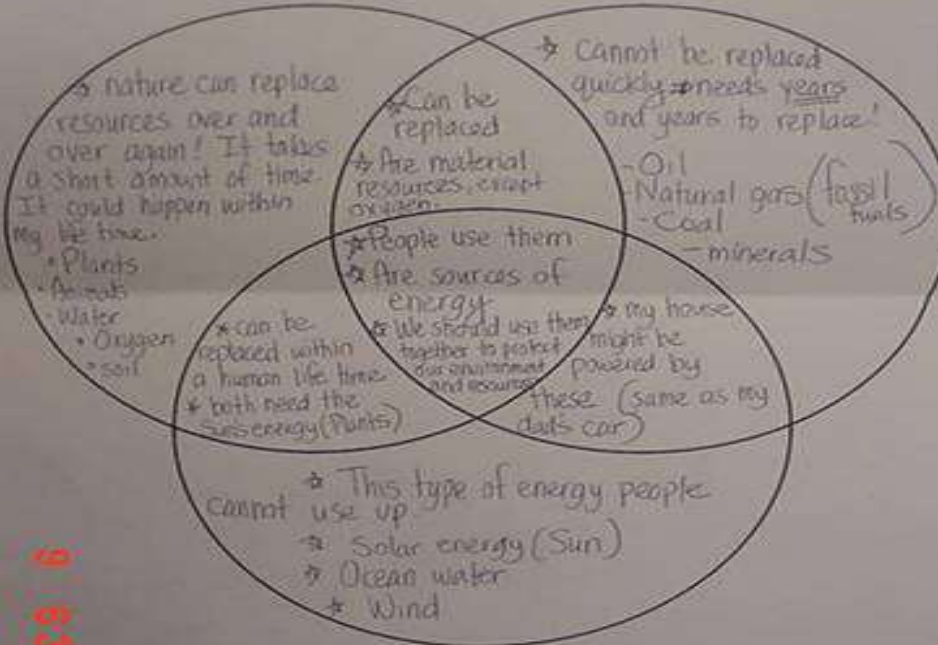 ☆ nature can replace
resources over and
over again! It takes
a short amount of time
It could happen within
my life time.
• Plants
• Animals
- Water
• Oxygen
• soil
☆ Can be
replaced
☆ Are material
resources, except
oxygen.
☆ Cannot be replaced
quickly → needs years
and years to replace!
- Oil
- Natural gas (fossil
fuals)
- Coal
- minerals
☆ People use them
☆ Are sources of
energy
☆ We should use them
together to protect
our environment
and resources
☆ can be
replaced within
a human life time
☆ both need the
sun's energy (Plants)
☆ my house
might be
powered by
these (same as my
dad's car)
☆ This type of energy people
cannot use up
☆ Solar energy (Sun)
☆ Ocean water
☆ Wind